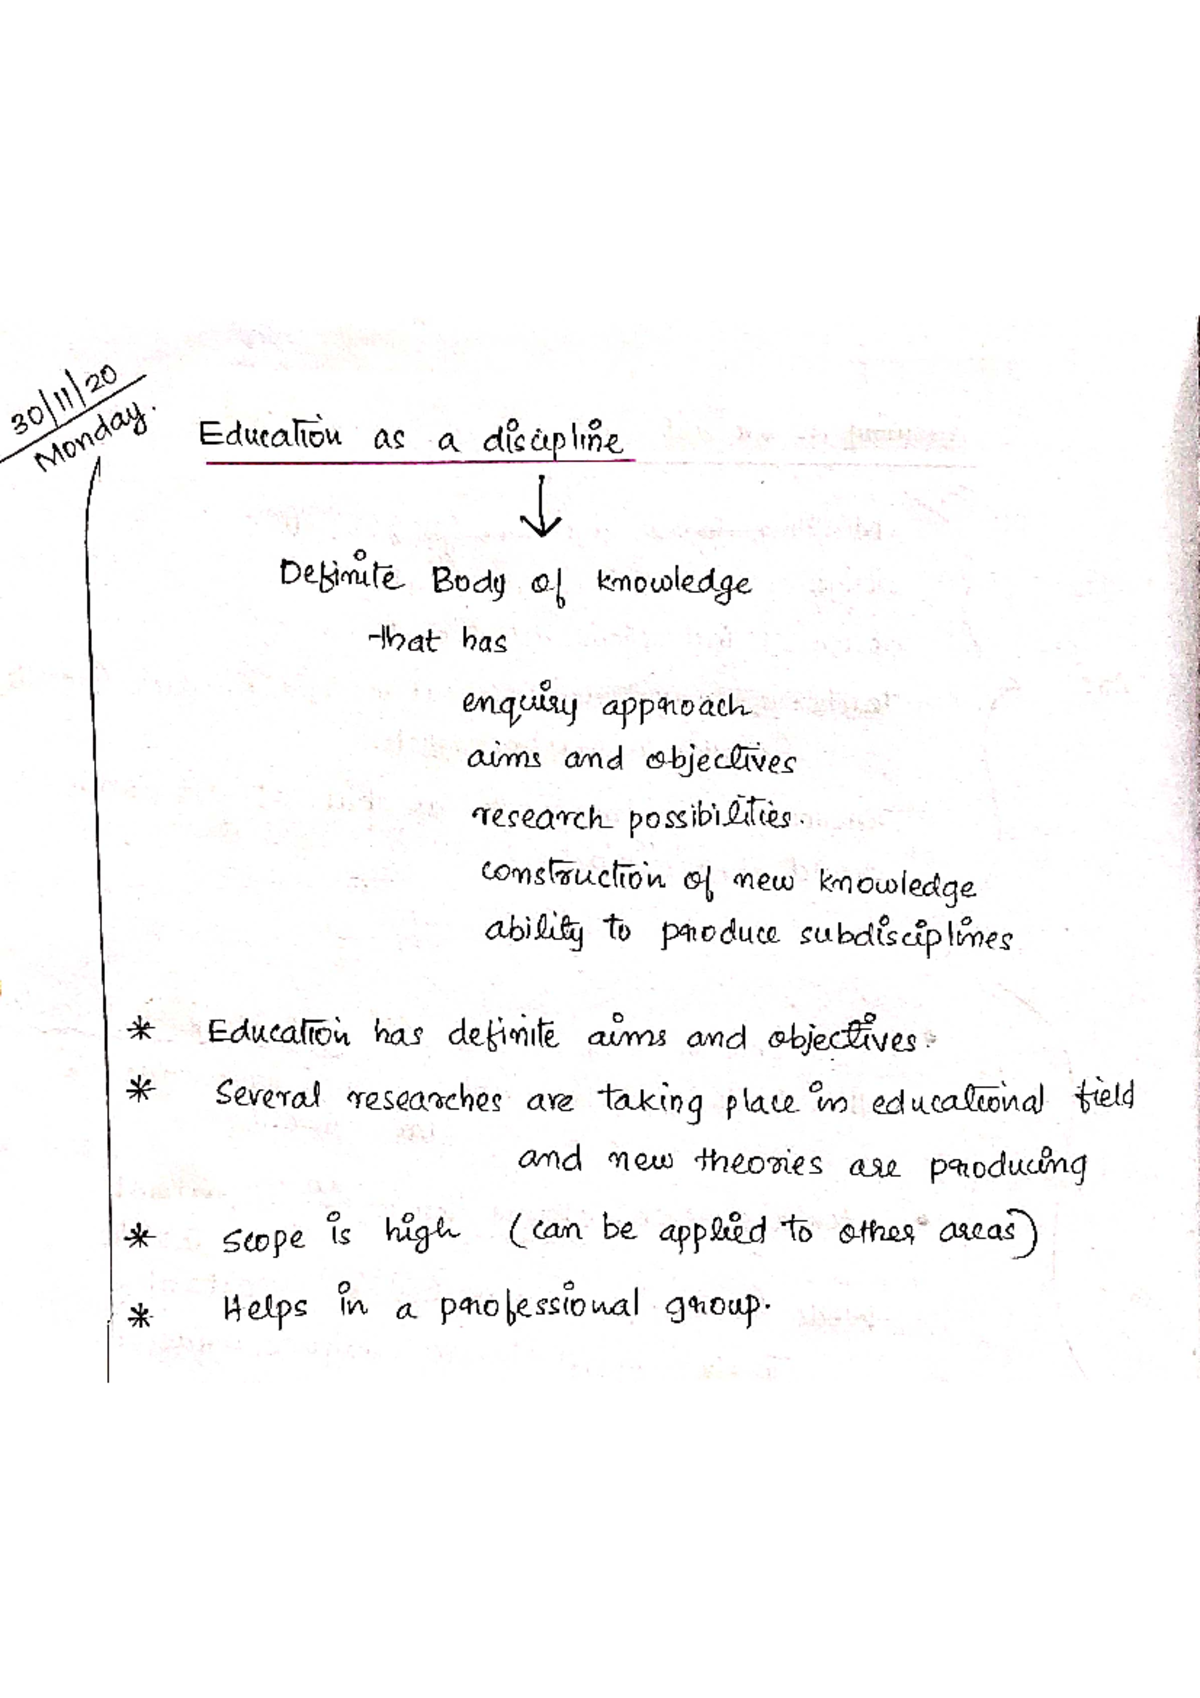 30/11/20
Monday.
Education as a discipline
↓
Definite Body of knowledge
that has
enquiry approach
aims and objectives
research possibilities.
construction of new knowledge
ability to produce subdisciplines
* Education has definite aims and objectives.
* Several researches are taking place in educational field
and new theories are producing
* Scope is high (can be applied to other areas)
* Helps in a professional group.